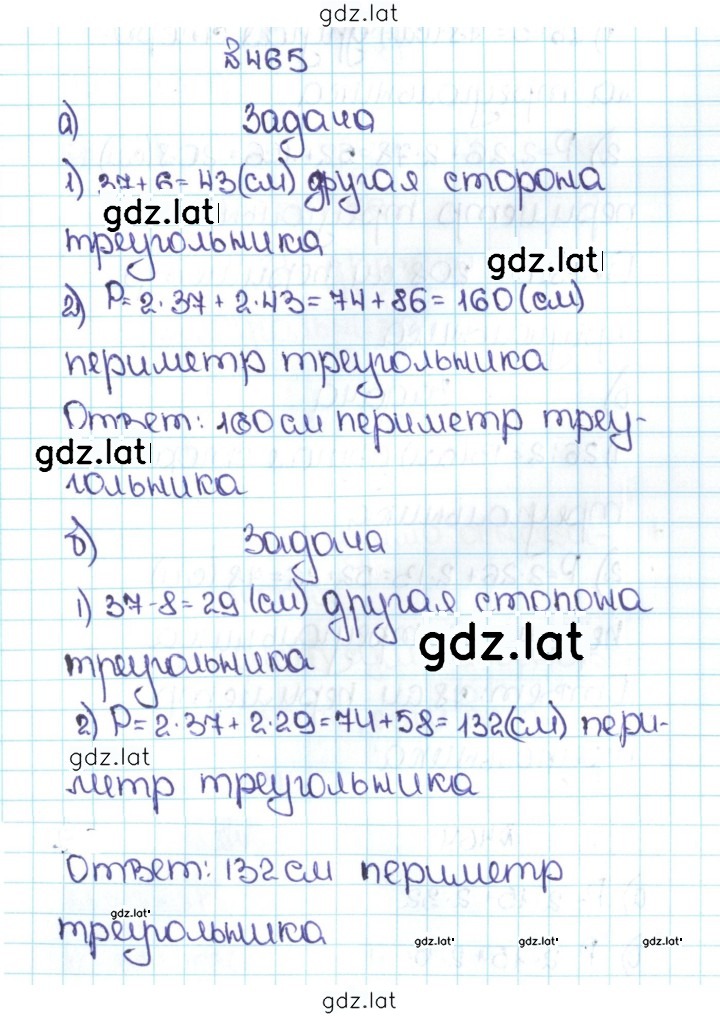 gdz.lat
№465
а) Задача
1) 37+6=43(см) другая сторона
gdz.lat
треугольника
gdz.lat
2) P=2·37+2·43=74+86=160(см)
периметр треугольника
Ответ: 160см периметр треу-
gdz.lat
гольника
б) Задача
1) 37-8=29(см) другая стопоша
gdz.lat
треугольника
2) P=2·37+2·29=74+58=132(см) пери-
gdz.lat
метр треугольника
Ответ: 132см периметр
gdz.lat
треугольника
gdz.lat gdz.lat gdz.lat
gdz.lat